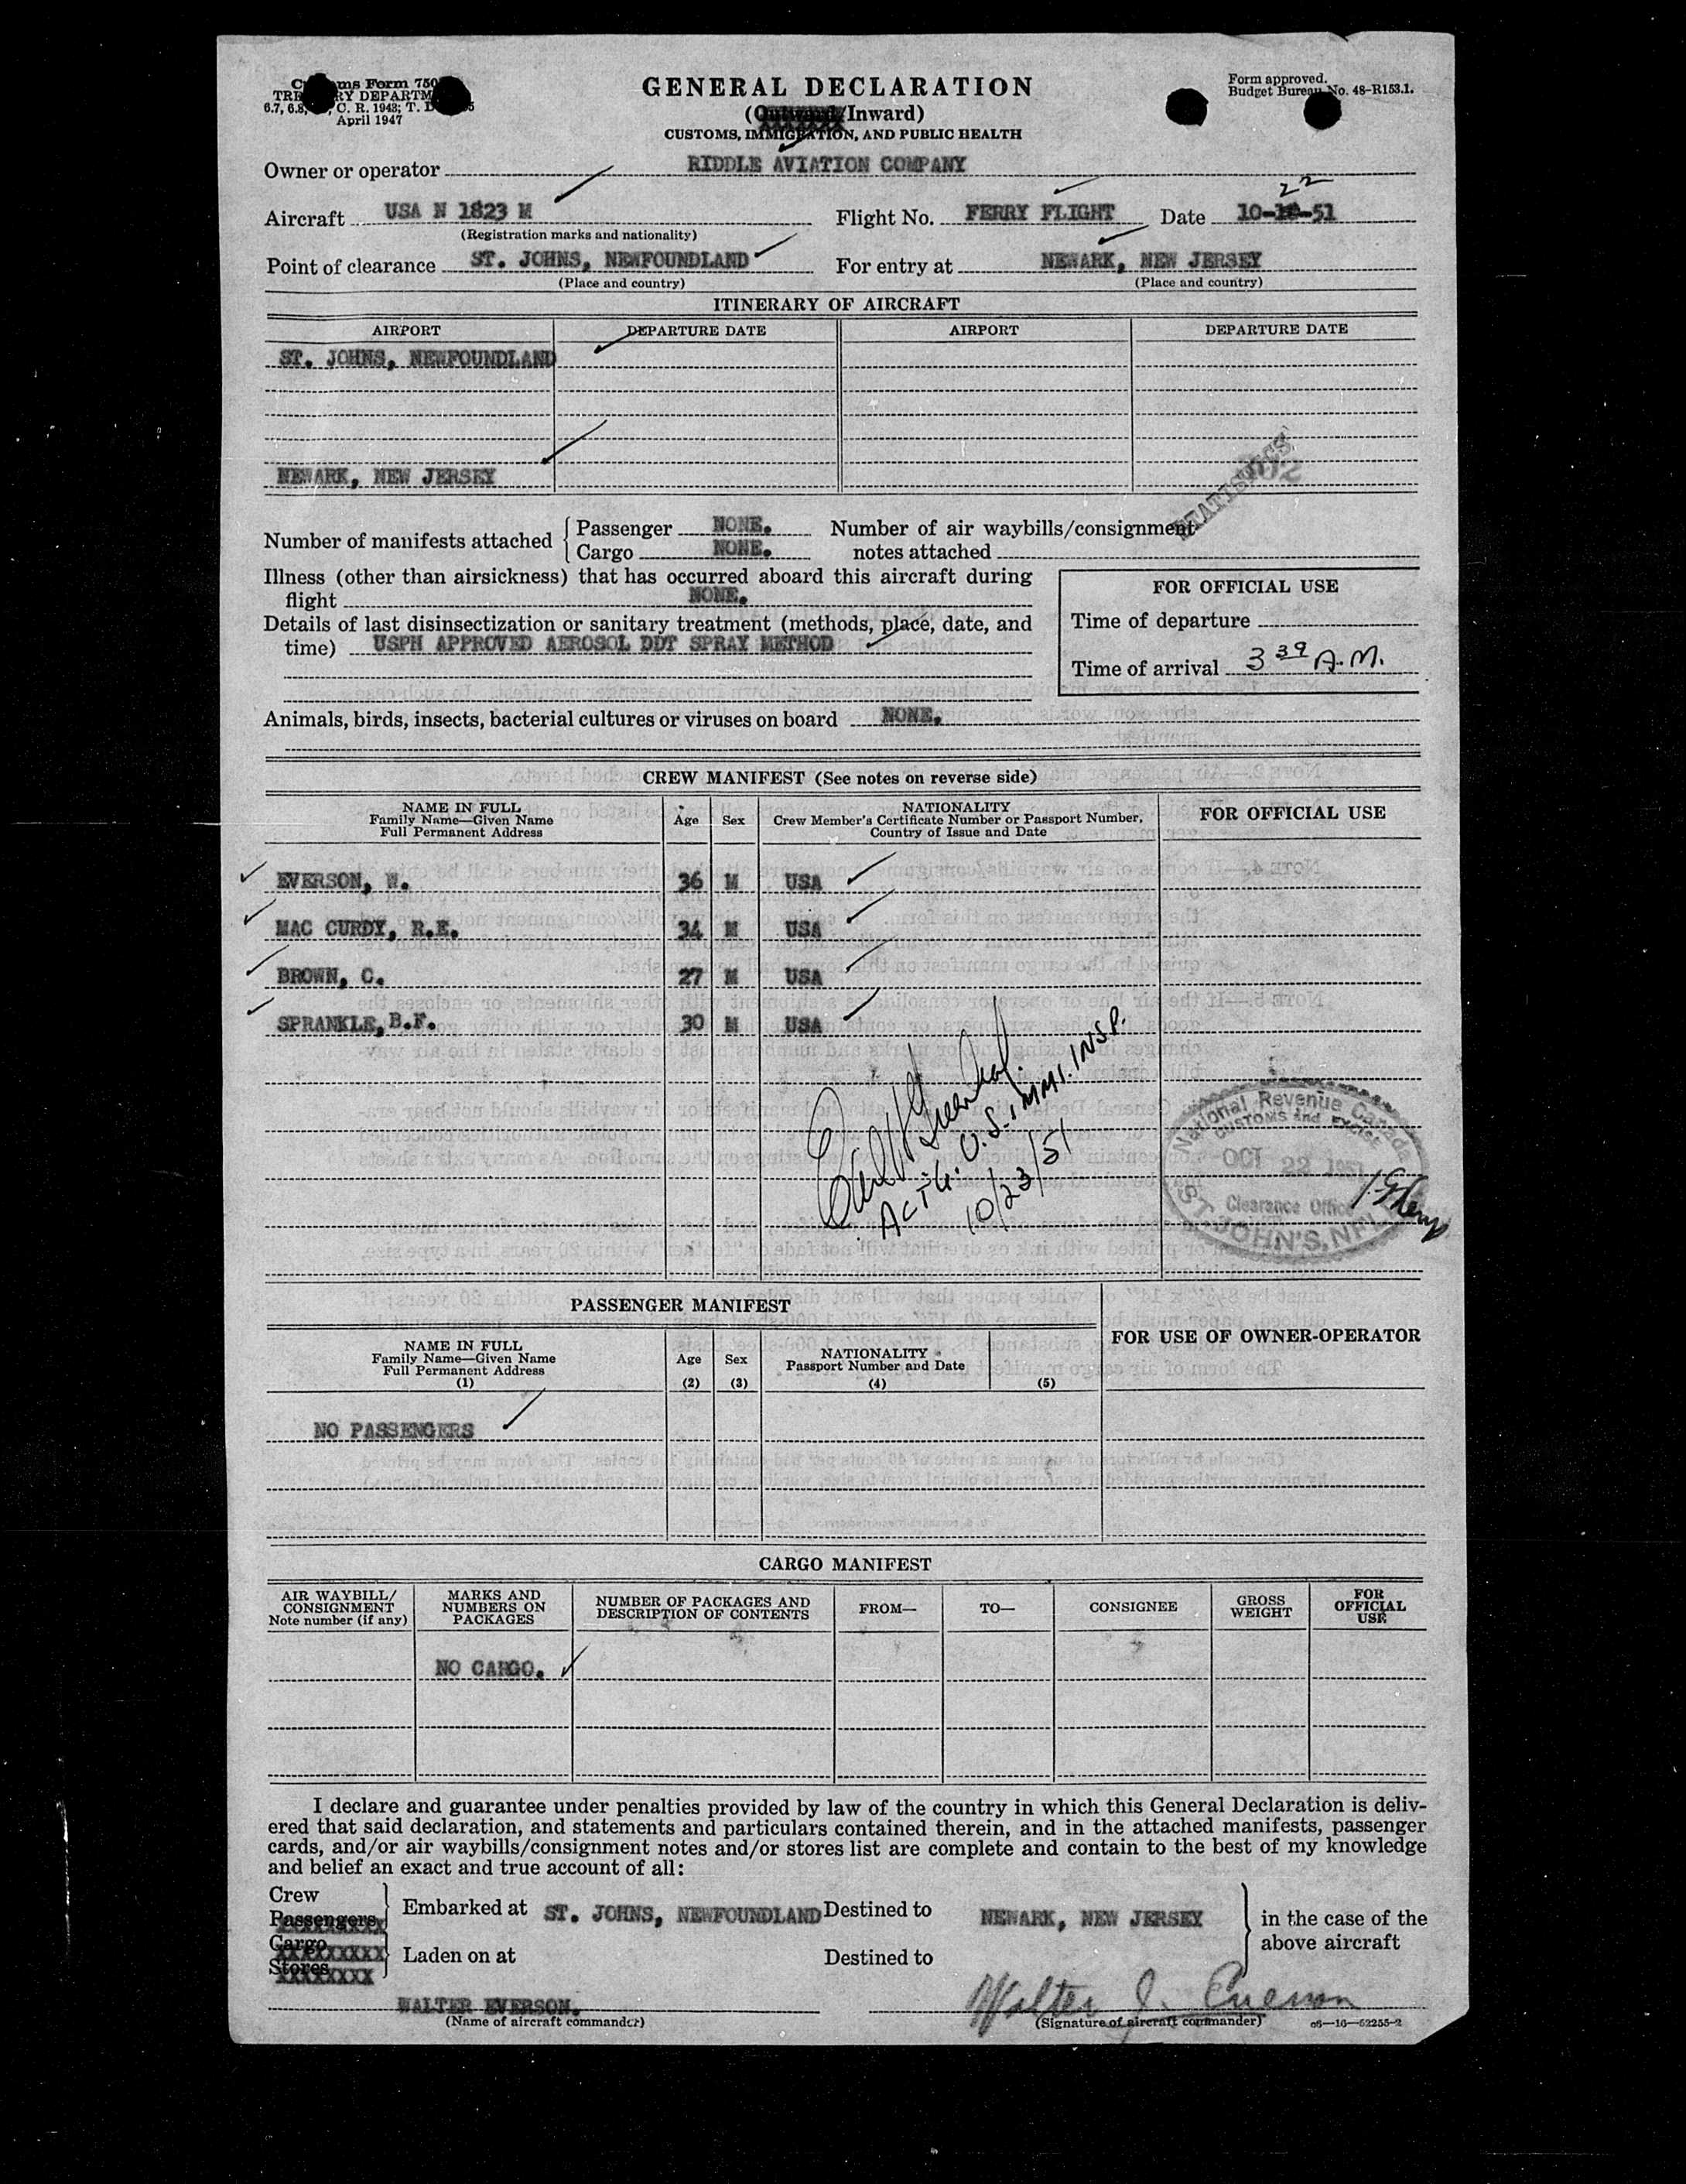 Customs Form 750
TREASURY DEPARTMENT
6.7, 6.8, C. R. 1943; T. D.
April 1947
GENERAL DECLARATION
(Outward/Inward)
CUSTOMS, IMMIGRATION, AND PUBLIC HEALTH
Form approved.
Budget Bureau No. 48-R153.1.
Owner or operator RIDDLE AVIATION COMPANY
22
Aircraft USA N 1823 M Flight No. FERRY FLIGHT Date 10-18-51
(Registration marks and nationality)
Point of clearance ST. JOHNS, NEWFOUNDLAND For entry at NEWARK, NEW JERSEY
(Place and country) (Place and country)
ITINERARY OF AIRCRAFT
AIRPORT DEPARTURE DATE AIRPORT DEPARTURE DATE
ST. JOHNS, NEWFOUNDLAND
NEWARK, NEW JERSEY
STATISTICS
202
Number of manifests attached Passenger NONE. Number of air waybills/consignment
Cargo NONE. notes attached
Illness (other than airsickness) that has occurred aboard this aircraft during
flight NONE.
Details of last disinsectization or sanitary treatment (methods, place, date, and
time) USPH APPROVED AEROSOL DDT SPRAY METHOD
FOR OFFICIAL USE
Time of departure
Time of arrival 3 39 A.M.
Animals, birds, insects, bacterial cultures or viruses on board NONE.
CREW MANIFEST (See notes on reverse side)
NAME IN FULL
Family Name—Given Name
Full Permanent Address
Age
Sex
NATIONALITY
Crew Member's Certificate Number or Passport Number,
Country of Issue and Date
FOR OFFICIAL USE
EVERSON, W. 36 M USA
MAC CURDY, R.E. 34 M USA
BROWN, C. 27 M USA
SPRANKLE, B.F. 30 M USA
ACTG. U.S. IMMI. INSP.
10/23/51
National Revenue Canada
CUSTOMS and EXCISE
OCT 22 1951
Clearance Office
ST. JOHN'S, NFLD.
PASSENGER MANIFEST
NAME IN FULL
Family Name—Given Name
Full Permanent Address
(1)
Age
(2)
Sex
(3)
NATIONALITY
Passport Number and Date
(4) (5)
FOR USE OF OWNER-OPERATOR
NO PASSENGERS
CARGO MANIFEST
AIR WAYBILL/
CONSIGNMENT
Note number (if any)
MARKS AND
NUMBERS ON
PACKAGES
NUMBER OF PACKAGES AND
DESCRIPTION OF CONTENTS
FROM—
TO—
CONSIGNEE
GROSS
WEIGHT
FOR
OFFICIAL
USE
NO CARGO.
I declare and guarantee under penalties provided by law of the country in which this General Declaration is deliv-
ered that said declaration, and statements and particulars contained therein, and in the attached manifests, passenger
cards, and/or air waybills/consignment notes and/or stores list are complete and contain to the best of my knowledge
and belief an exact and true account of all:
Crew
Passengers Embarked at ST. JOHNS, NEWFOUNDLAND Destined to NEWARK, NEW JERSEY in the case of the
Cargo above aircraft
Stores Laden on at Destined to
WALTER EVERSON. Walter J. Everson
(Name of aircraft commander) (Signature of aircraft commander) 06—16—52255-2